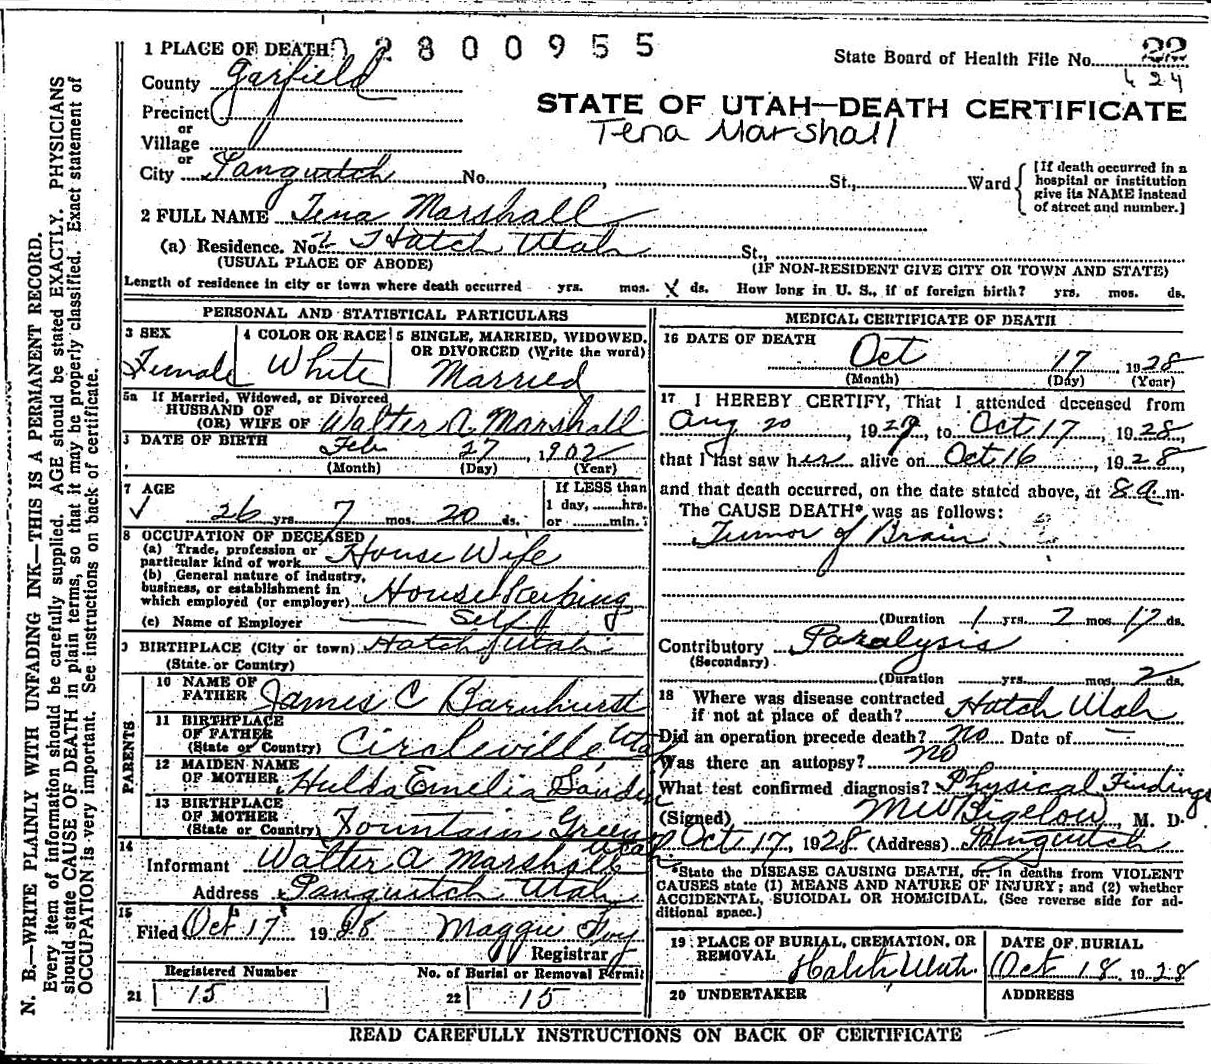 1 PLACE OF DEATH 2800955
State Board of Health File No. 22
424
County Garfield
STATE OF UTAH—DEATH CERTIFICATE
Precinct
Tena Marshall
or
Village
or
City Panguitch No. , St., Ward
[If death occurred in a
hospital or institution
give its NAME instead
of street and number.]
2 FULL NAME Tena Marshall
(a) Residence. No. Hatch Utah St.,
(USUAL PLACE OF ABODE) (IF NON-RESIDENT GIVE CITY OR TOWN AND STATE)
Length of residence in city or town where death occurred yrs. mos. ds. How long in U. S., if of foreign birth? yrs. mos. ds.
PERSONAL AND STATISTICAL PARTICULARS
3 SEX
Female
4 COLOR OR RACE
White
5 SINGLE, MARRIED, WIDOWED,
OR DIVORCED (Write the word)
Married
5a If Married, Widowed, or Divorced
HUSBAND OF
(OR) WIFE OF Walter A. Marshall
DATE OF BIRTH Feb 27, 1902
(Month) (Day) (Year)
7 AGE
26 yrs. 7 mos. 20 ds.
If LESS than
1 day, hrs.
or min.
8 OCCUPATION OF DECEASED
(a) Trade, profession or
particular kind of work House Wife
(b) General nature of industry,
business, or establishment in
which employed (or employer) House Keeping
(c) Name of Employer Self
9 BIRTHPLACE (City or town) Hatch, Utah
(State or Country)
PARENTS
10 NAME OF
FATHER James C Barnhurst
11 BIRTHPLACE
OF FATHER
(State or Country) Circleville, Utah
12 MAIDEN NAME
OF MOTHER Hulda Emelia
13 BIRTHPLACE
OF MOTHER
(State or Country) Fountain Green
Utah
14
Informant Walter A Marshall
Address Panguitch Utah
15
Filed Oct 17 1928 Maggie Foy
Registrar
Registered Number
21 15
No. of Burial or Removal Permit
22 15
MEDICAL CERTIFICATE OF DEATH
16 DATE OF DEATH
Oct 17 1928
(Month) (Day) (Year)
17 I HEREBY CERTIFY, That I attended deceased from
Aug 20, 1927, to Oct 17, 1928,
that I last saw her alive on Oct 16, 1928,
and that death occurred, on the date stated above, at 8 a m.
The CAUSE DEATH* was as follows:
Tumor of Brain
(Duration 1 yrs. 2 mos. 17 ds.
Contributory Paralysis
(Secondary)
(Duration yrs. mos. 2 ds.
18 Where was disease contracted
if not at place of death? Hatch Utah
Did an operation precede death? No Date of —
Was there an autopsy? No
What test confirmed diagnosis? Physical Findings
(Signed) M W Bigelow, M. D.
Oct. 17, 1928 (Address) Panguitch
*State the DISEASE CAUSING DEATH, or, in deaths from VIOLENT
CAUSES state (1) MEANS AND NATURE OF INJURY; and (2) whether
ACCIDENTAL, SUICIDAL OR HOMICIDAL. (See reverse side for ad-
ditional space.)
19 PLACE OF BURIAL, CREMATION, OR
REMOVAL
Hatch Utah
DATE OF BURIAL
Oct 18 1928
20 UNDERTAKER
ADDRESS
READ CAREFULLY INSTRUCTIONS ON BACK OF CERTIFICATE
N. B.—WRITE PLAINLY WITH UNFADING INK—THIS IS A PERMANENT RECORD.
Every item of information should be carefully supplied. AGE should be stated EXACTLY. PHYSICIANS
should state CAUSE OF DEATH in plain terms, so that it may be properly classified. Exact statement of
OCCUPATION is very important. See instructions on back of certificate.